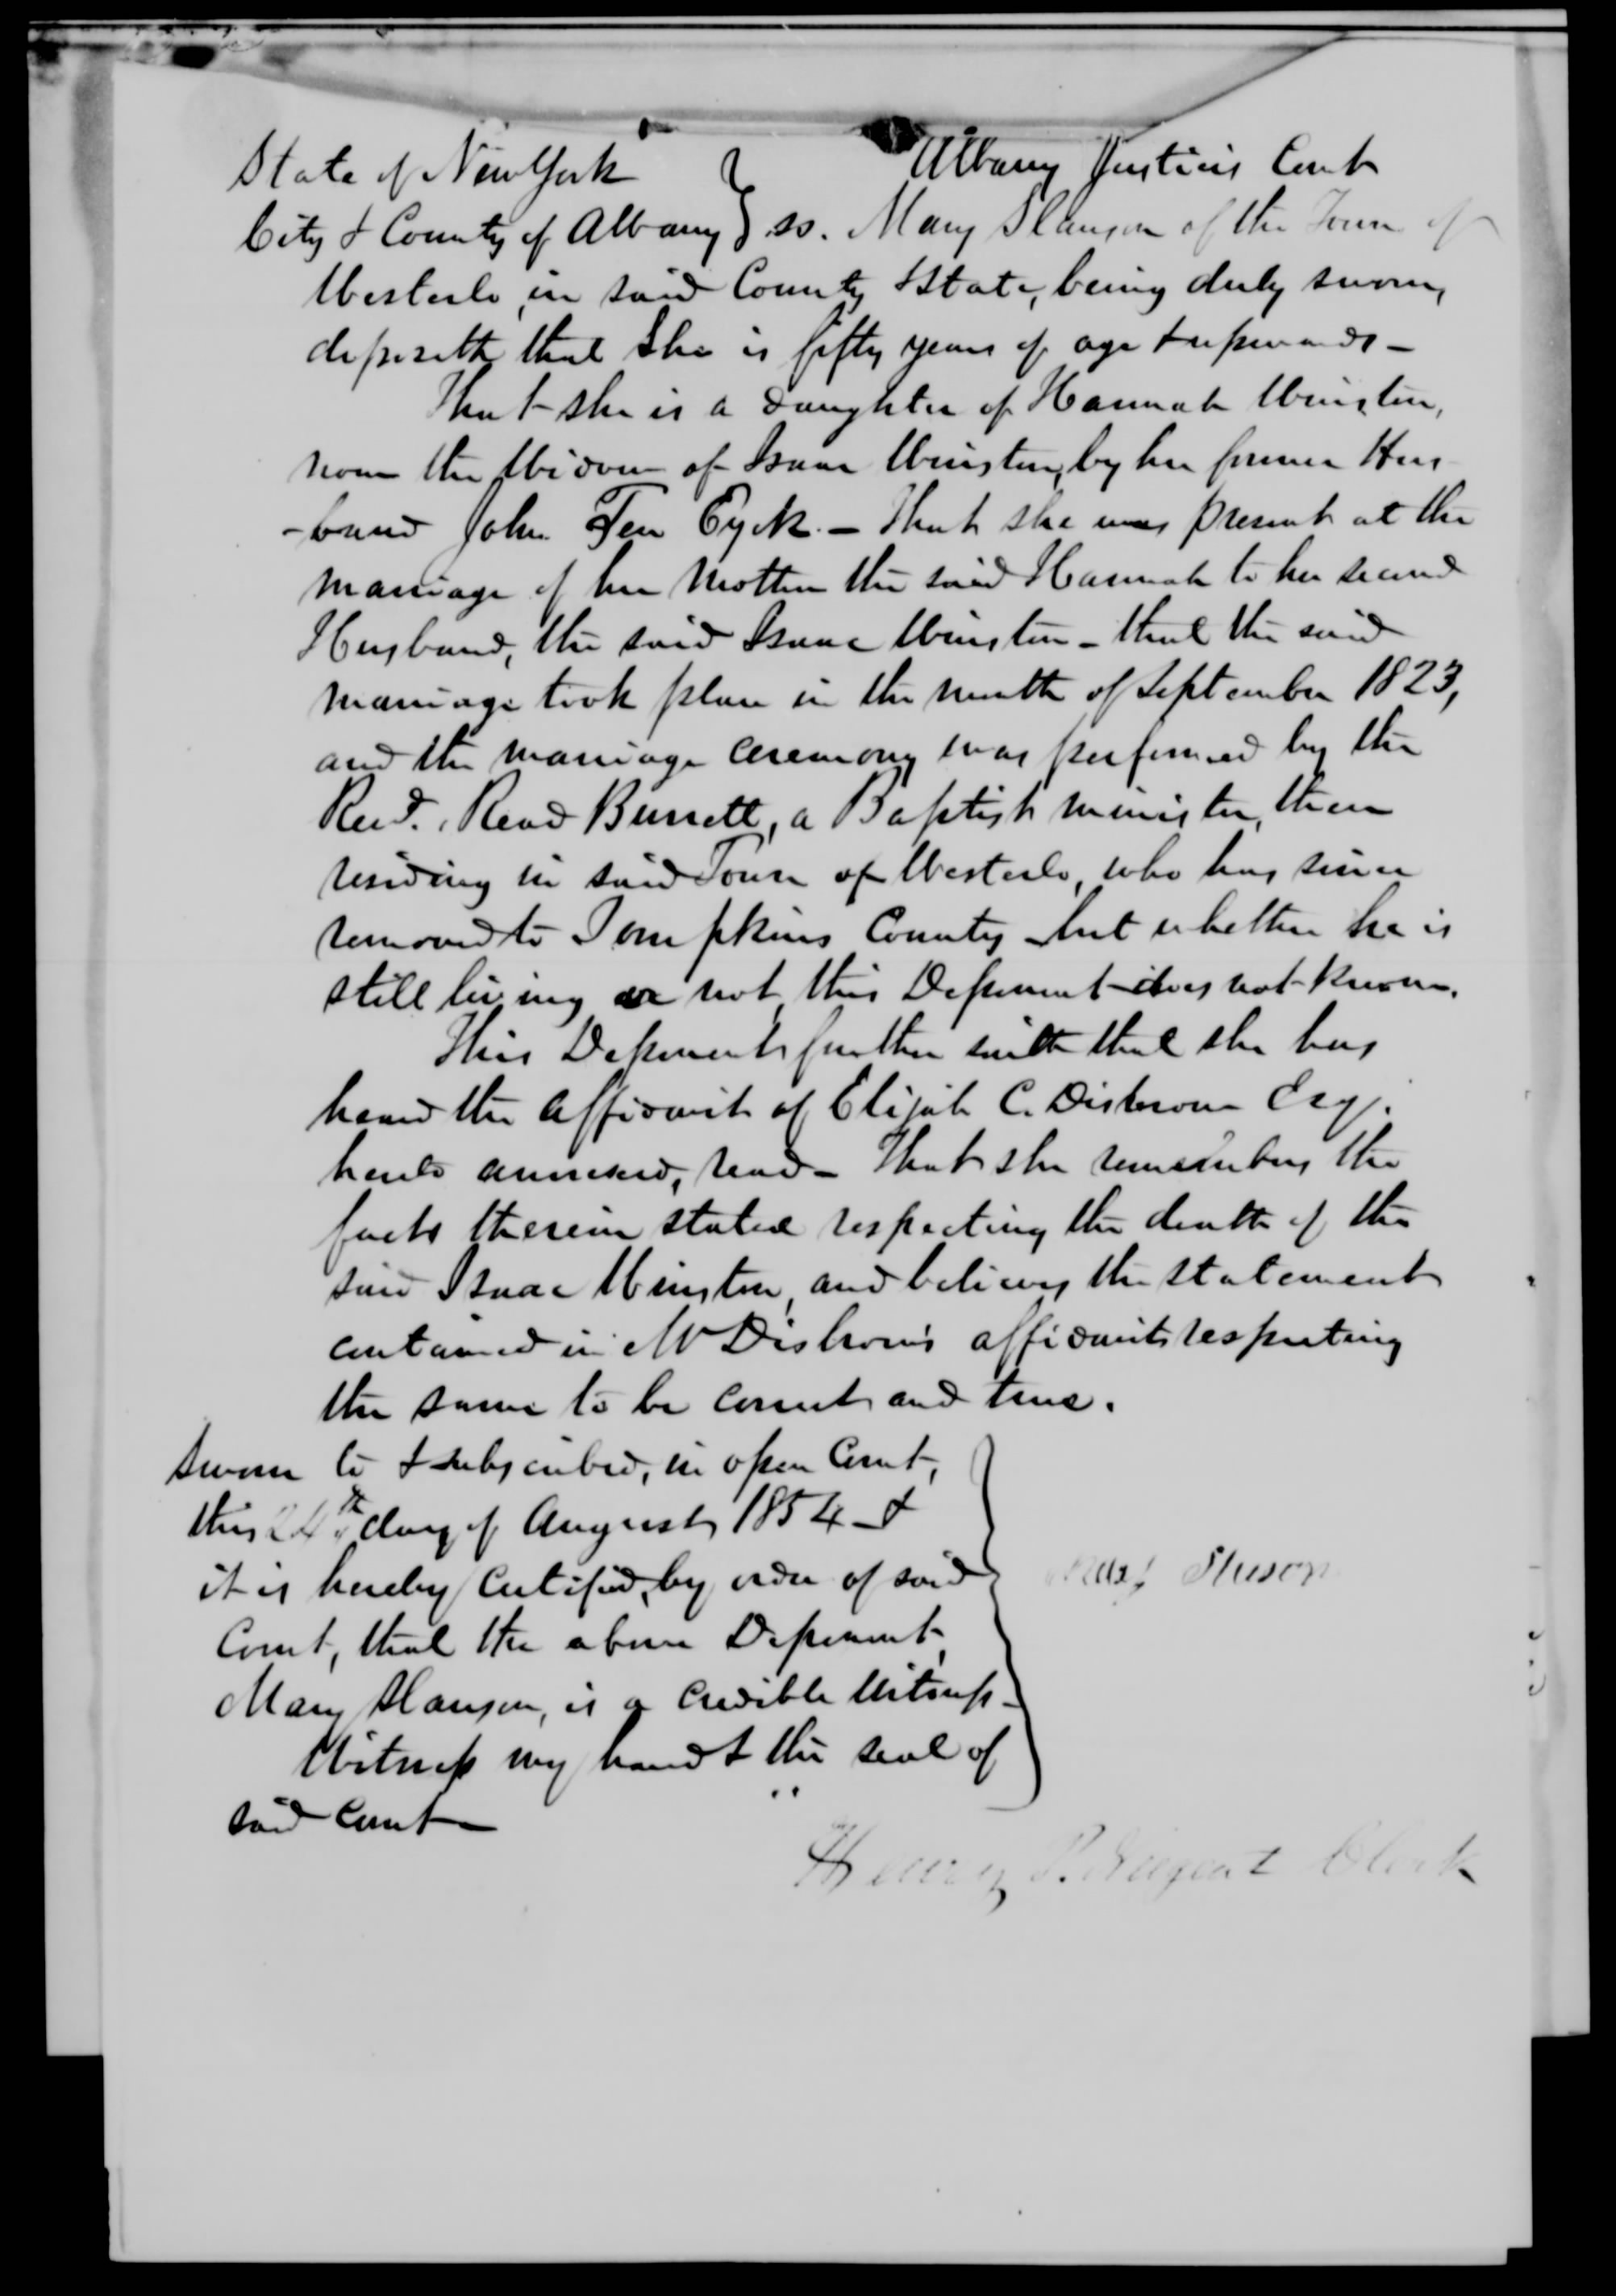 State of New York } Albany Justices Court
City & County of Albany } ss. Mary Slauson of the Town of
Westerlo, in said County & State, being duly sworn,
deposeth that she is fifty years of age & upwards –
That she is a daughter of Hannah Winston,
now the Widow of Isaac Winston, by her former Hus-
-band John Ten Eyck. – That she was present at the
marriage of her Mother the said Hannah to her second
Husband, the said Isaac Winston – that the said
marriage took place in the month of September 1823,
and the marriage ceremony was performed by the
Revd. Read Burrett, a Baptist minister, then
residing in said Town of Westerlo, who has since
removed to Tompkins County – but whether he is
still living or not, this Deponent does not know.
This Deponent further saith that she has
heard the affidavit of Elijah C. Disbrow Esq.
hereto annexed, read – That she remembers the
facts therein stated respecting the death of the
said Isaac Winston, and believes the statement
contained in Mr Disbrow's affidavit respecting
the same to be correct and true.
Sworn to & subscribed, in open Court,
this 24th day of August 1854 – &
it is hereby certified, by order of said
Court, that the above Deponent,
Mary Slauson, is a credible Witness –
Witness my hand & the seal of
said Court –
Mary Sluson
Henry Clerk